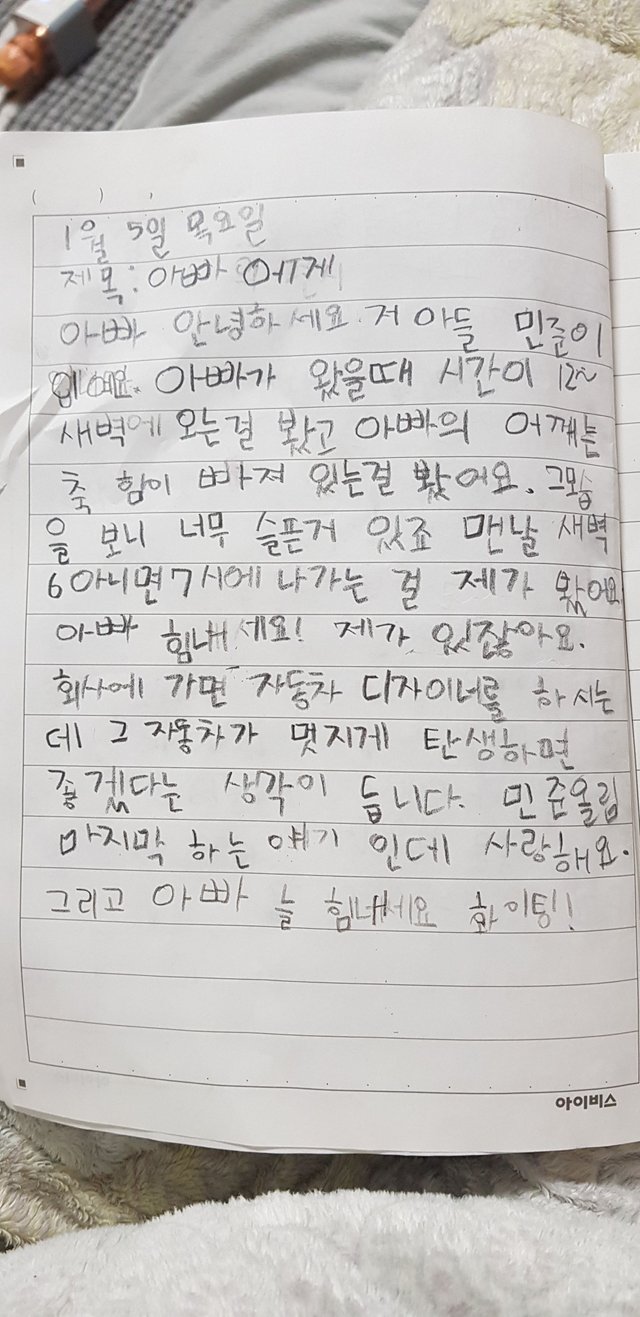 ( ) ,
1월 5일 목요일
제목:아빠 어께
아빠 안녕하세요 저 아들 민준이
입에요. 아빠가 왔을때 시간이 12~
새벽에 오는걸 봤고 아빠의 어깨는
축 힘이 빠져 있는걸 봤어요. 그모습
을 보니 너무 슬픈거 있죠 맨날 새벽
6아니면7시에 나가는 걸 제가 봤어요
아빠 힘내세요! 제가 있잖아요.
회사에 가면 자동차 디자이너를 하시는
데 그 자동차가 멋지게 탄생하면
좋겠다는 생각이 듭니다. 민준올림
마지막 하는 얘기 인데 사랑해요.
그리고 아빠 늘 힘내세요 화이팅!
아이비스